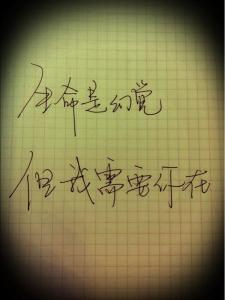 生命是幻觉
但我需要你在